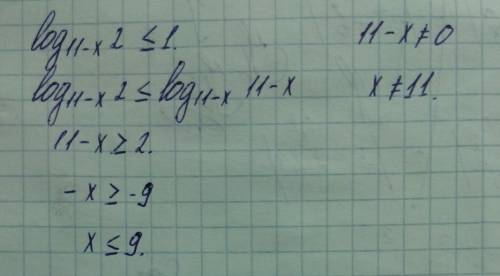 log₁₁₋ₓ 2 ≤ 1. 11-x ≠ 0
log₁₁₋ₓ 2 ≤ log₁₁₋ₓ 11-x x ≠ 11.
11-x ≥ 2.
-x ≥ -9
x ≤ 9.